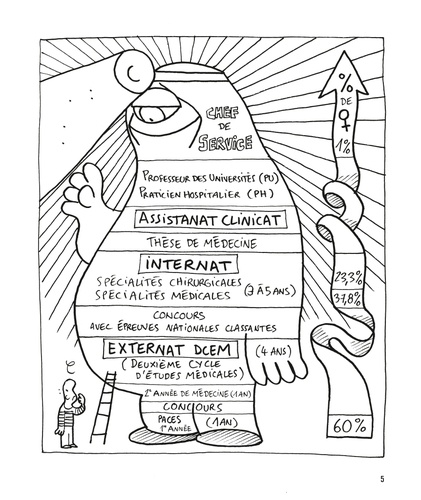 %
DE
♀
1%
CHEF
DE
SERVICE
PROFESSEUR DES UNIVERSITÉS (PU)
PRATICIEN HOSPITALIER (PH)
ASSISTANAT CLINICAT
THÈSE DE MÉDECINE
INTERNAT
SPÉCIALITÉS CHIRURGICALES
SPÉCIALITÉS MÉDICALES
(3 À 5 ANS)
23,3%
37,8%
CONCOURS
AVEC ÉPREUVES NATIONALES CLASSANTES
EXTERNAT DCEM (4 ANS)
(DEUXIÈME CYCLE
D'ÉTUDES MÉDICALES)
2e ANNÉE DE MÉDECINE (1 AN)
CONCOURS
PACES
1e ANNÉE
(1 AN)
60%
5